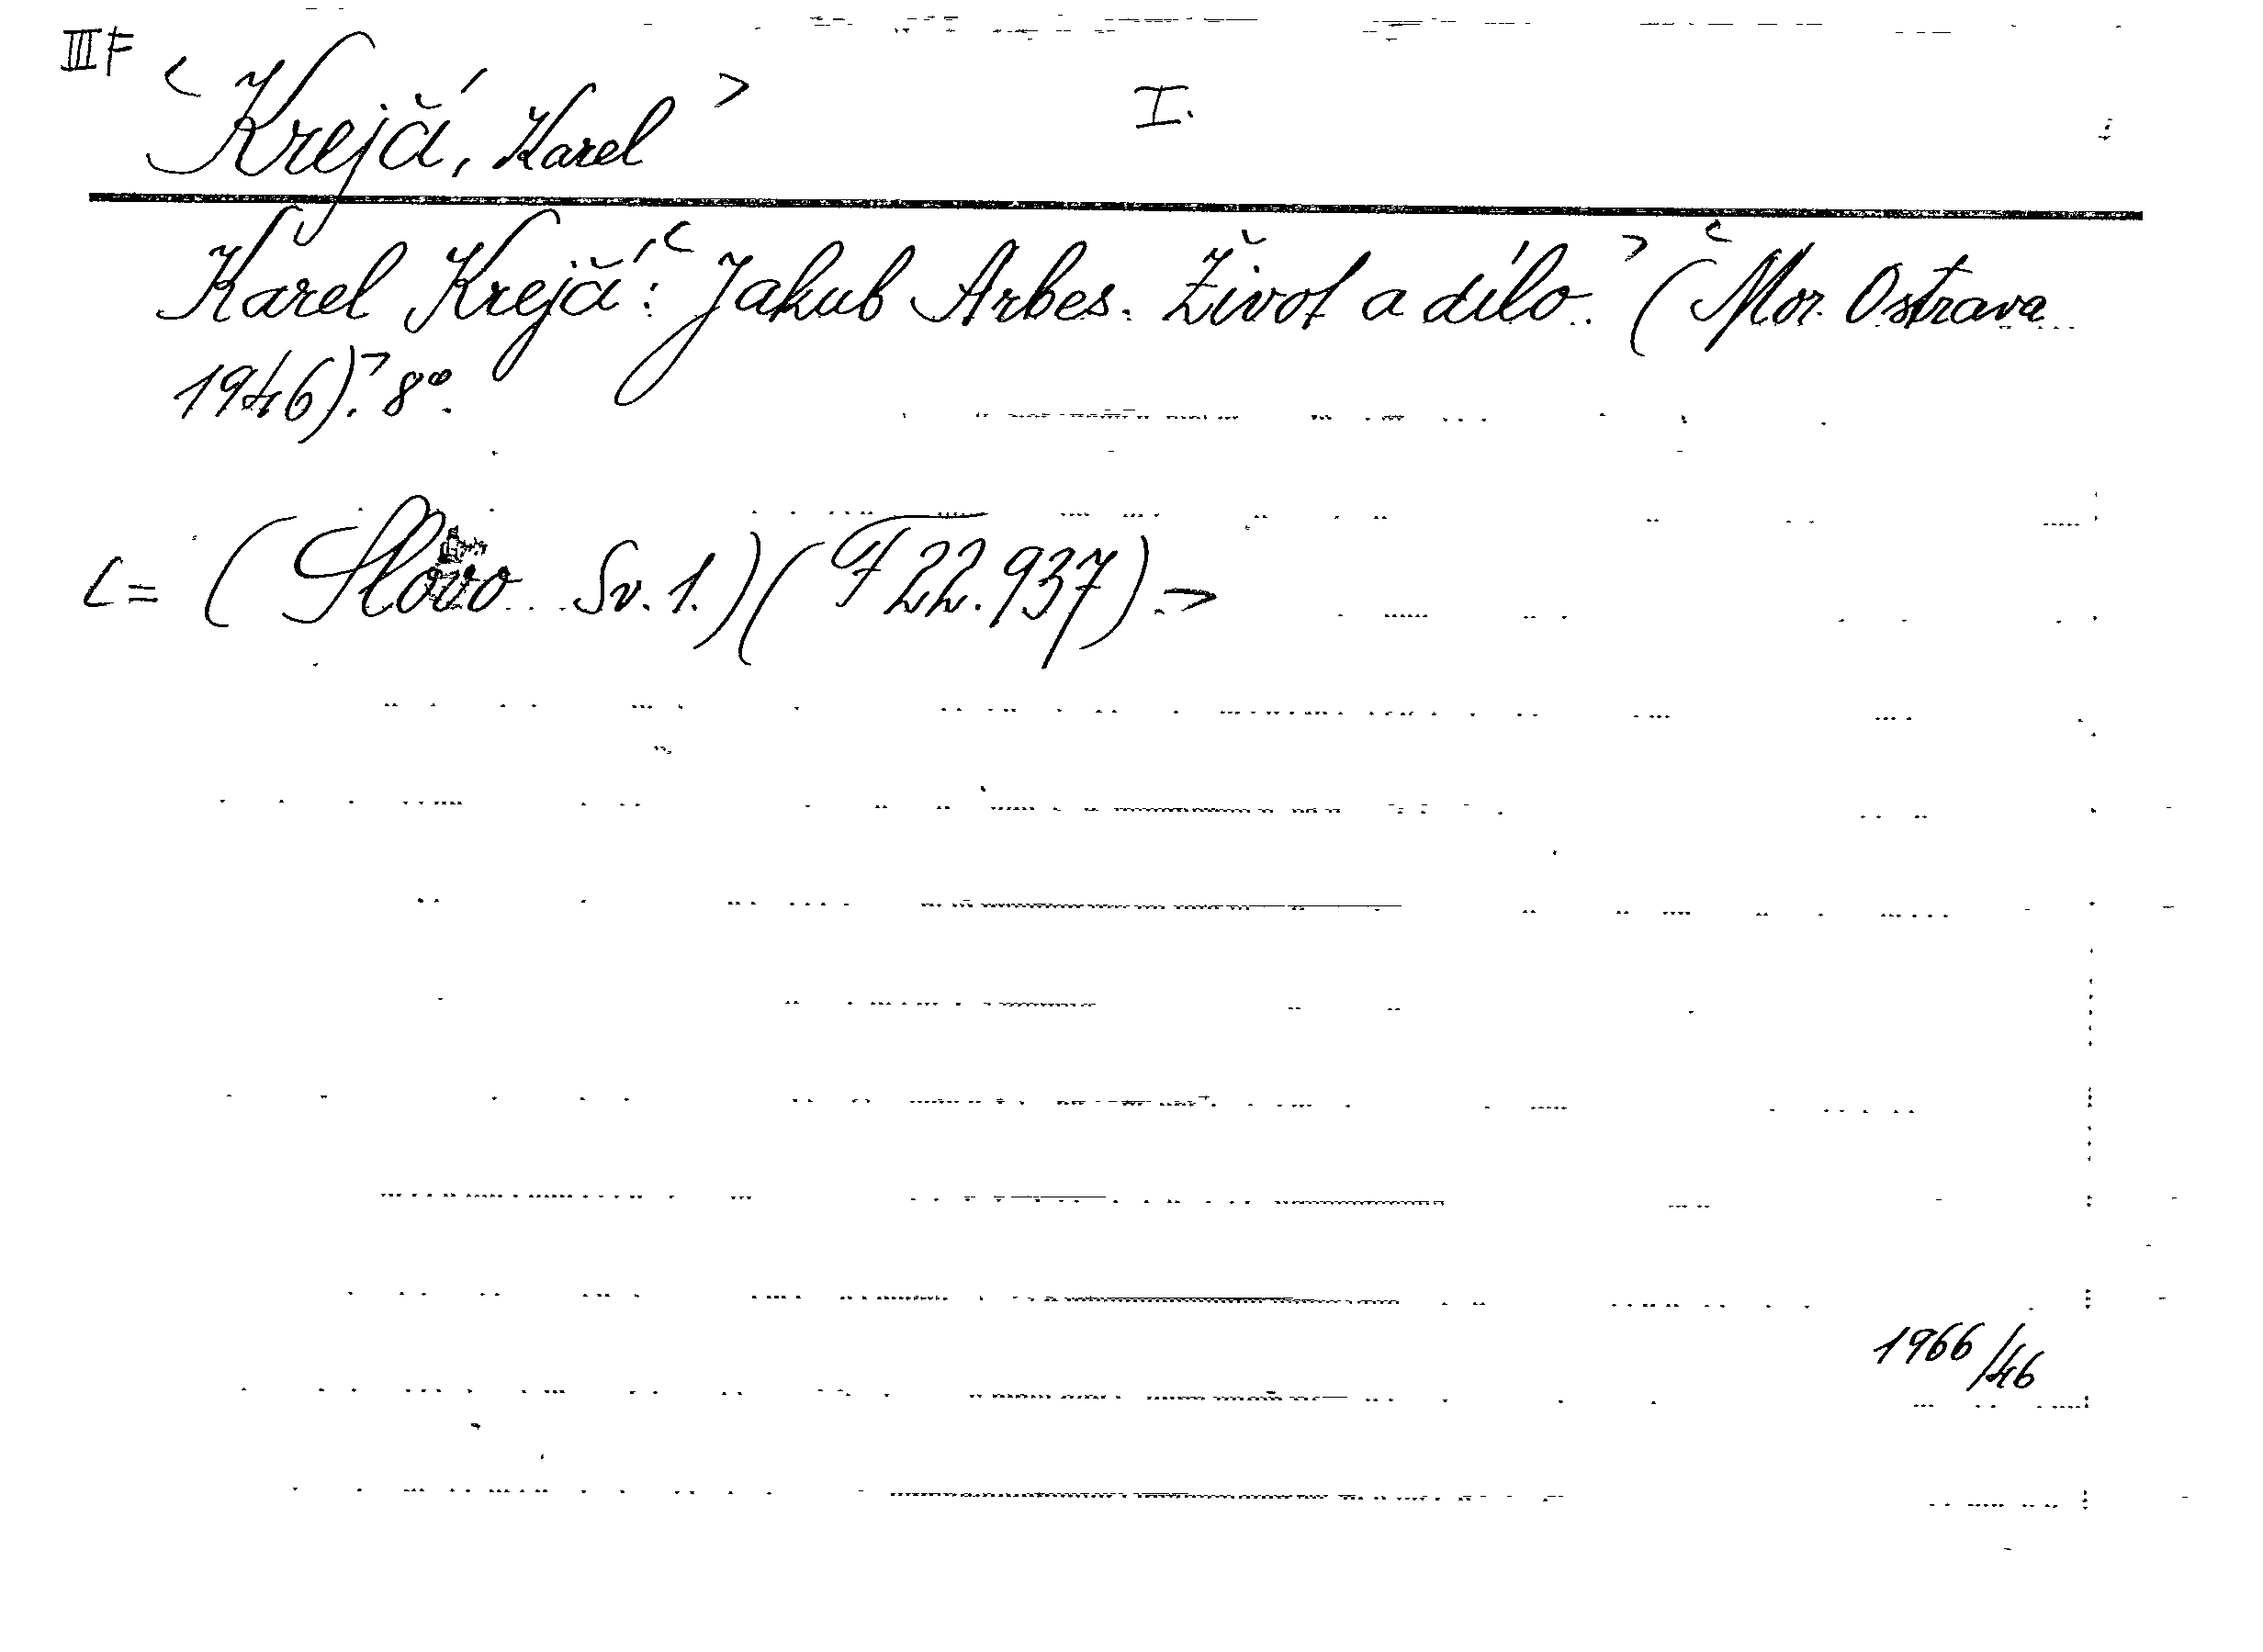 III F
<Krejčí, Karel> I.
Karel Krejčí: <Jakub Arbes. Život a dílo.> (<Mor. Ostrava
1946).> 8°.
<= (Slovo. Sv. 1.) (F 22.937).>
1966/46